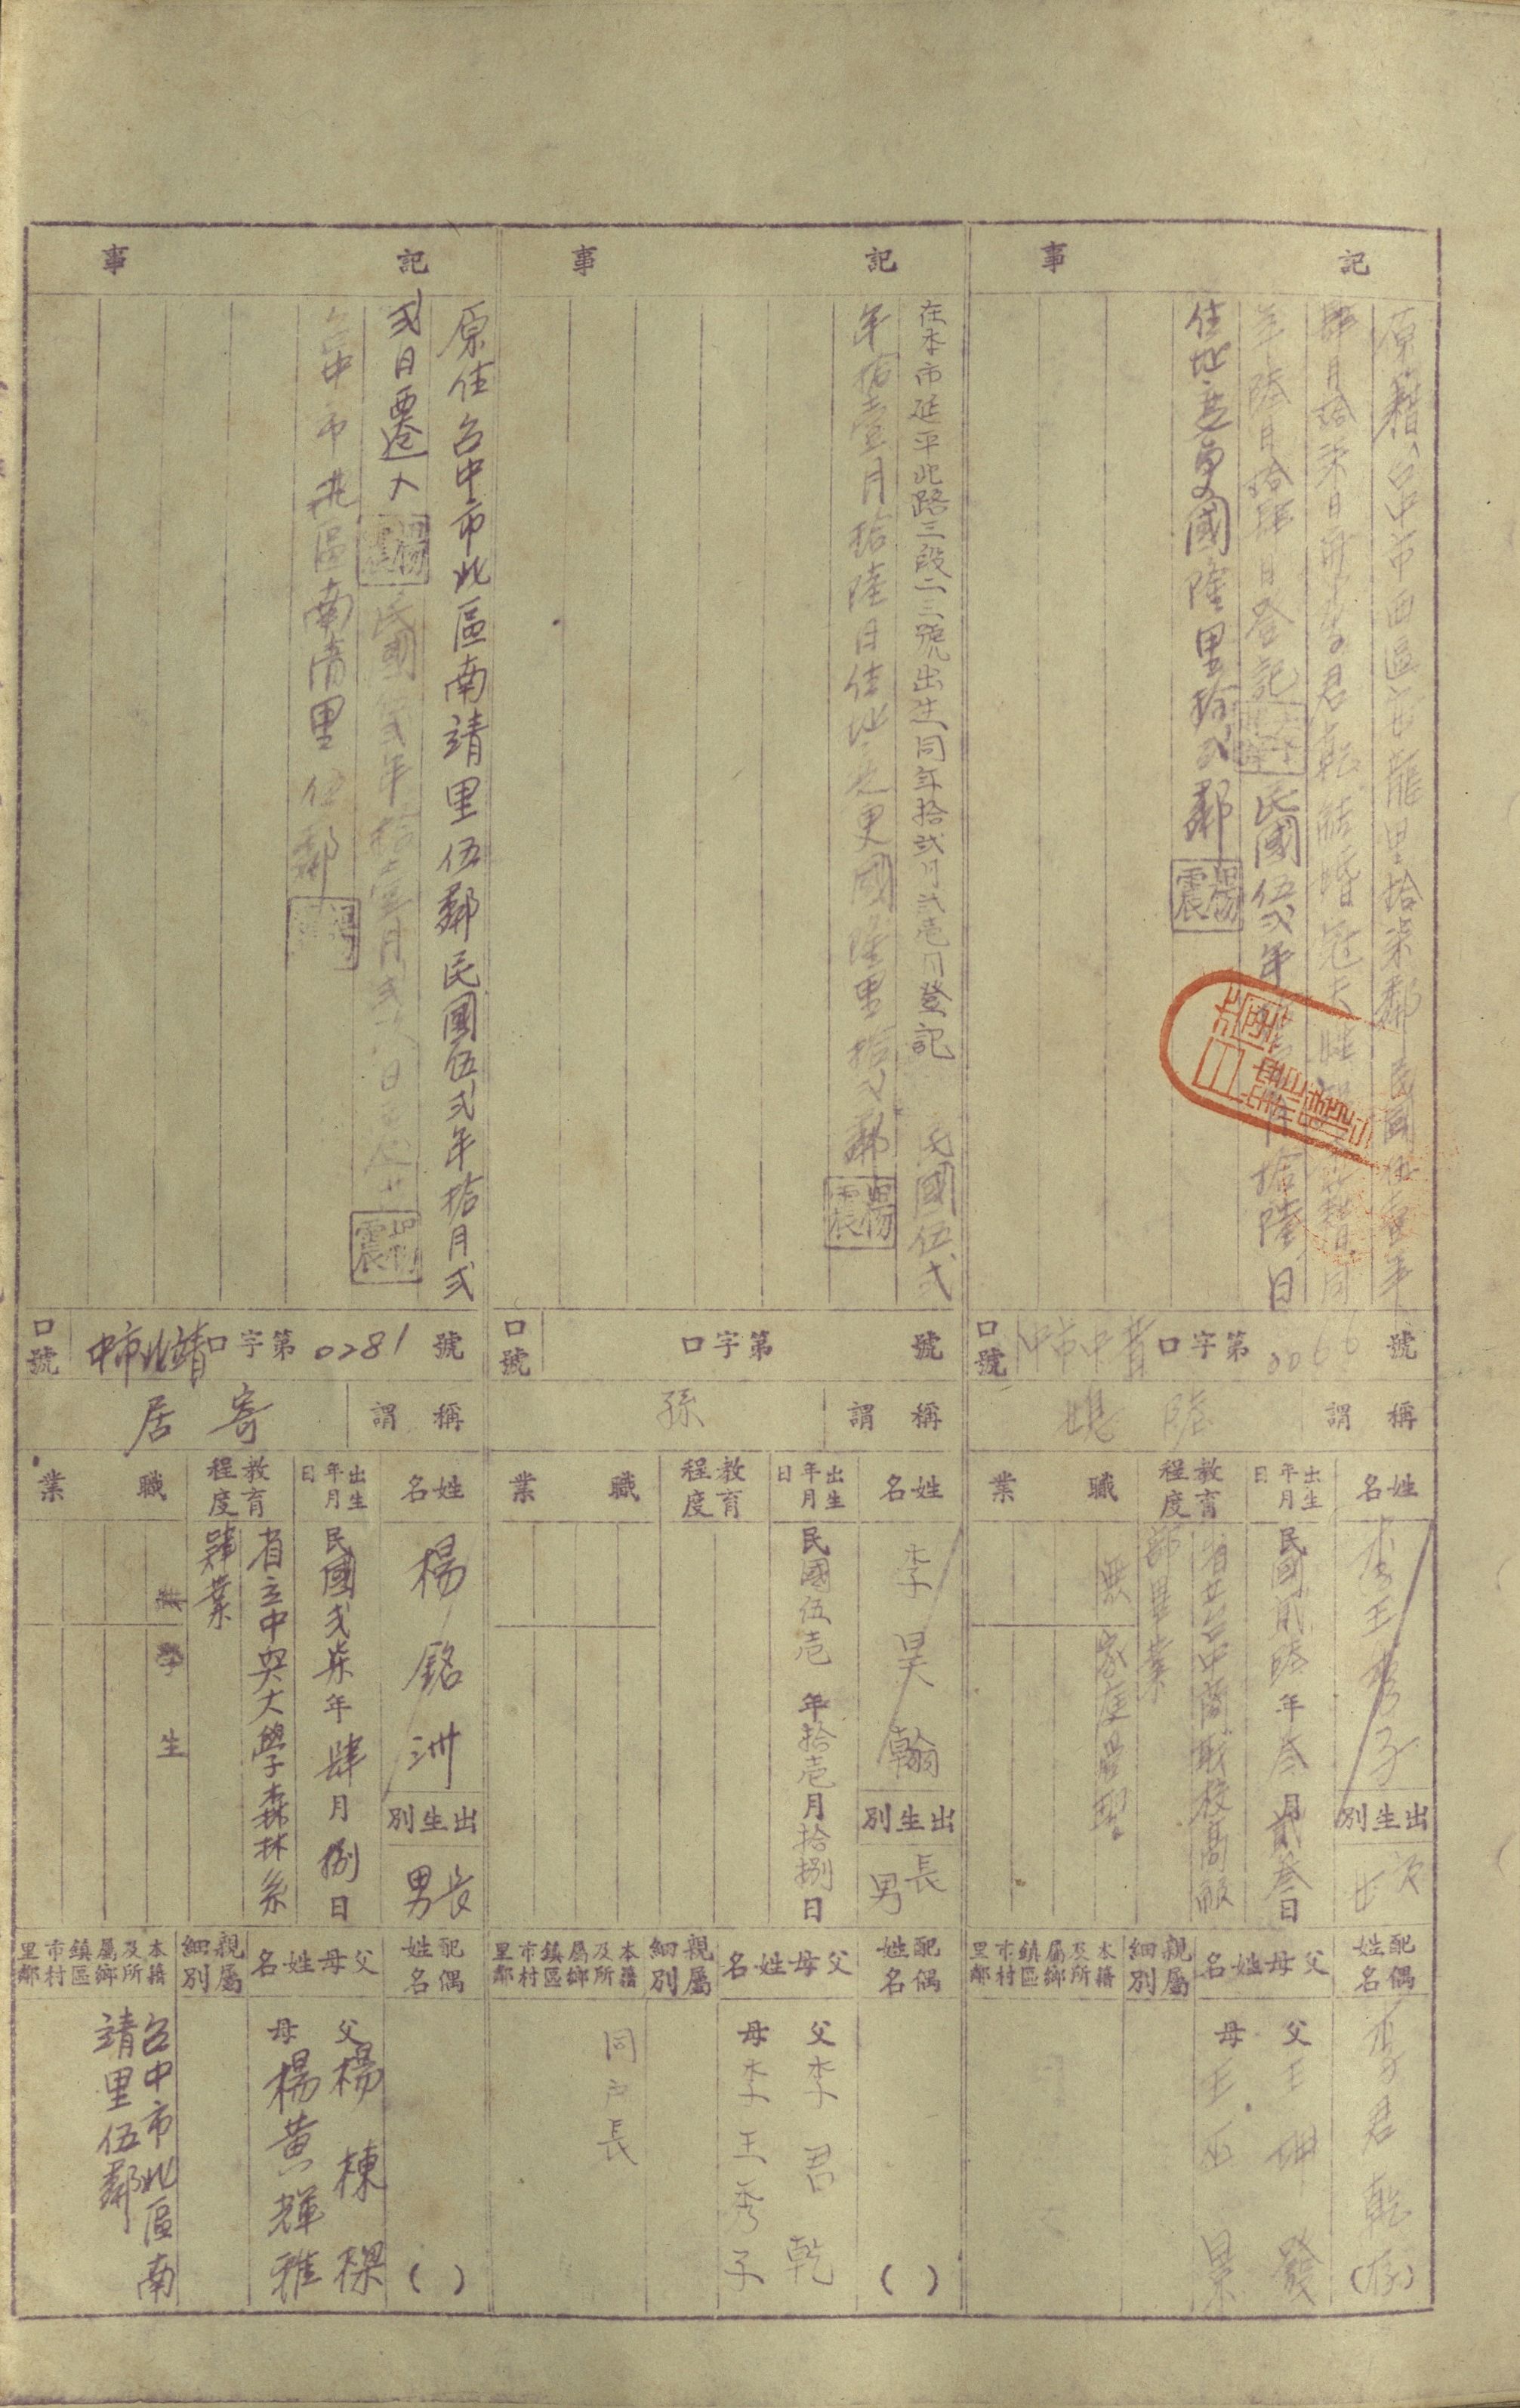 記事
原籍台中市西區
龍里拾柒鄰民國伍壹年
肆月拾柒日與李君乾結婚冠夫姓
籍同
年陸月拾肆日登記
民國伍弍年
拾陸日
住址變更國隆里拾弍鄰
楊震
口號
中市中
口字第0066號
稱謂
媳
姓名
李王秀子
出生別
次女
出生年月日
民國貳陸年叁月貳叁日
教育程度
省立台中商職校高級
部畢業
職業
無
家庭管理
配偶姓名
李君乾(存)
父母姓名
父王
發
母王巫
親屬細別
本籍及所屬鄉鎮區市村里鄰
記事
在本市延平北路三段二三號出生同年拾弍月弍壱日登記
民國伍弍
年拾壹月拾陸日住址変更國隆里拾弍鄰
楊震
口號
口字第
號
稱謂
孫
姓名
李昊翰
出生別
長男
出生年月日
民國伍壱年拾壱月拾捌日
教育程度
職業
配偶姓名
( )
父母姓名
父李君乾
母李王秀子
親屬細別
本籍及所屬鄉鎮區市村里鄰
同戶長
記事
原住台中市北區南靖里伍鄰民國伍弍年拾月弍
弍日遷入
楊震
民國伍弍年拾壹月弍
日遷出
楊震
台中市北區南靖里伍鄰
口號
中市北靖口字第0281號
稱謂
寄居
姓名
楊銘洲
出生別
長男
出生年月日
民國弍柒年肆月捌日
教育程度
省立中興大學森林系
肄業
職業
無
學生
配偶姓名
( )
父母姓名
父楊棟樑
母楊黃輝雅
親屬細別
本籍及所屬鄉鎮區市村里鄰
台中市北區南
靖里伍鄰